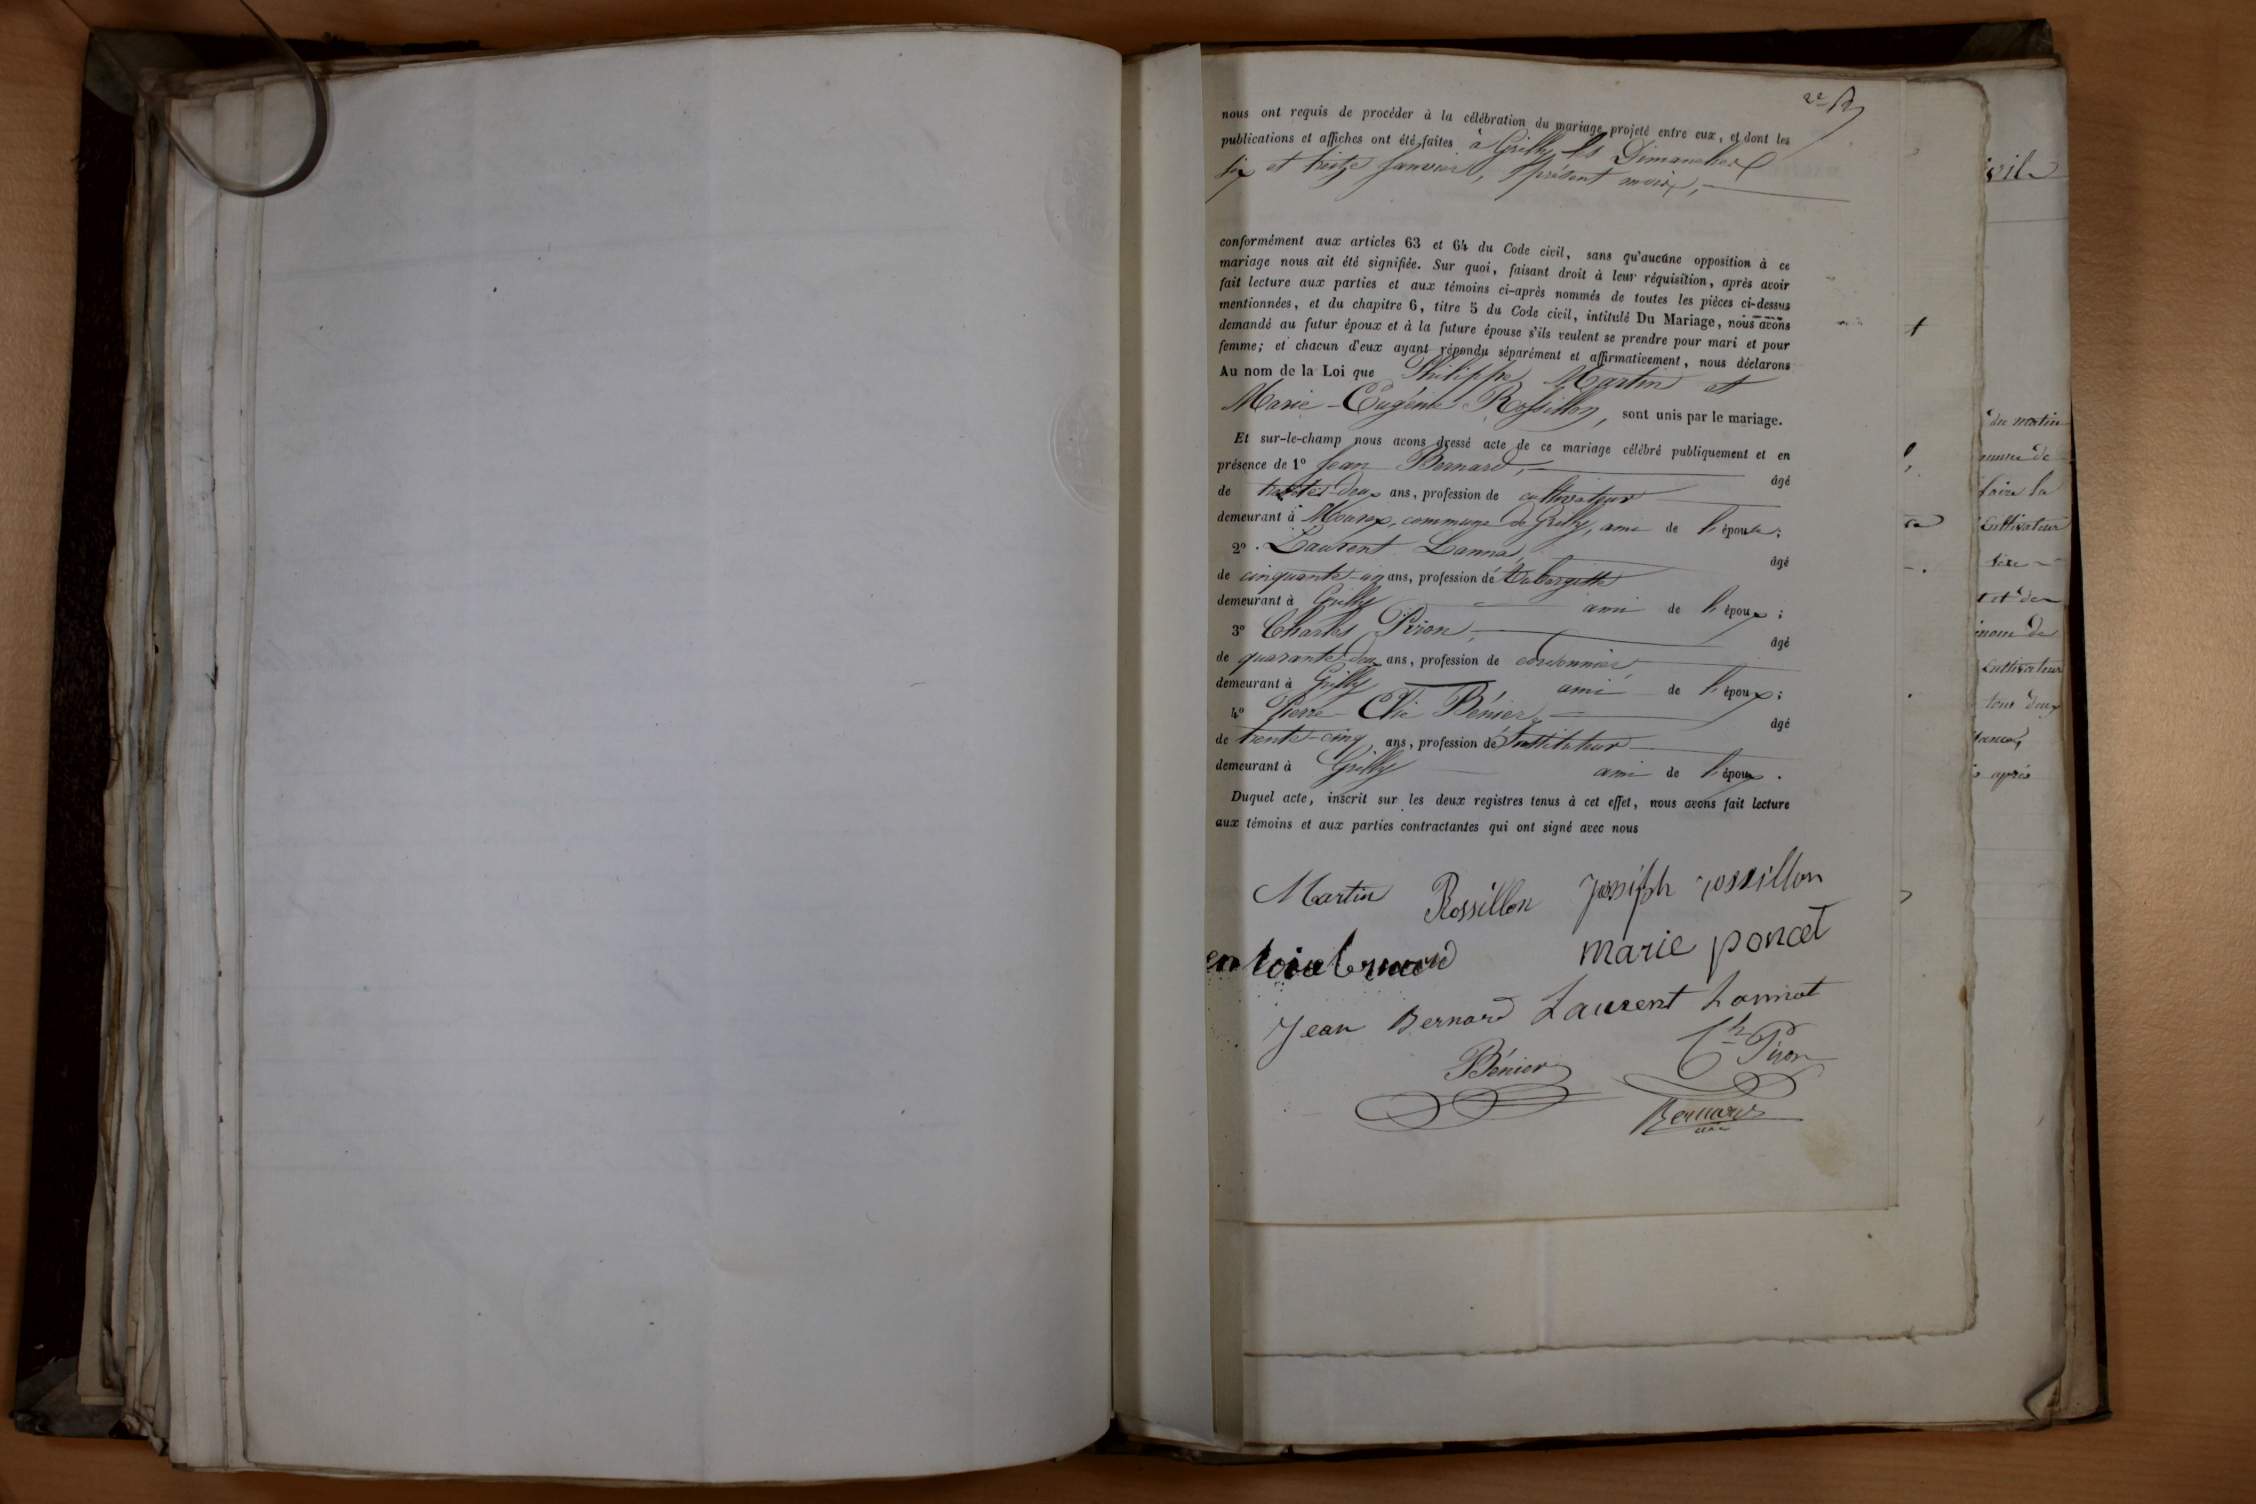 2e
nous ont requis de procéder à la célébration du mariage projeté entre eux, et dont les
publications et affiches ont été faites à Grilly les Dimanches
six et treize Janvier, présent mois,
conformément aux articles 63 et 64 du Code civil, sans qu'aucune opposition à ce
mariage nous ait été signifiée. Sur quoi, faisant droit à leur réquisition, après avoir
fait lecture aux parties et aux témoins ci-après nommés de toutes les pièces ci-dessus
mentionnées, et du chapitre 6, titre 5 du Code civil, intitulé Du Mariage, nous avons
demandé au futur époux et à la future épouse s'ils veulent se prendre pour mari et pour
femme; et chacun d'eux ayant répondu séparément et affirmativement, nous déclarons
Au nom de la Loi que Philippe Martin et
Marie-Eugénie Rossillon, sont unis par le mariage.
Et sur-le-champ nous avons dressé acte de ce mariage célébré publiquement et en
présence de 1° Jean Bernard, âgé
de trente-deux ans, profession de cultivateur
demeurant à Mourex, commune de Grilly, ami de l'épouse;
2° Laurent Lannat, âgé
de cinquante-un ans, profession de Aubergiste
demeurant à Grilly ami de l'époux;
3° Charles Piron, âgé
de quarante-deux ans, profession de cordonnier,
demeurant à Grilly ami de l'époux;
4° Pierre-Elie Bénier, âgé
de trente-cinq ans, profession de Instituteur
demeurant à Grilly ami de l'époux.
Duquel acte, inscrit sur les deux registres tenus à cet effet, nous avons fait lecture
aux témoins et aux parties contractantes qui ont signé avec nous
Martin Rossillon Joseph rossillon
marie poncet
Jean Bernard Laurent Lannat
Bénier Ch Piron
Bernard
du matin
faire la
Cultivateur
nom de
Cultivateur
tous deux
après